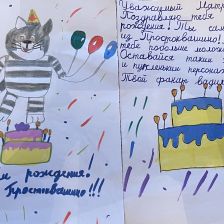 Уважаемый Матр
Поздравляю тебя
рождения! Ты сам
из Простоквашино!
тебе побольше молок
Оставайся таким
и пушистым персона
Твой фанат Вадим
м рождения.
Простоквашино!!!